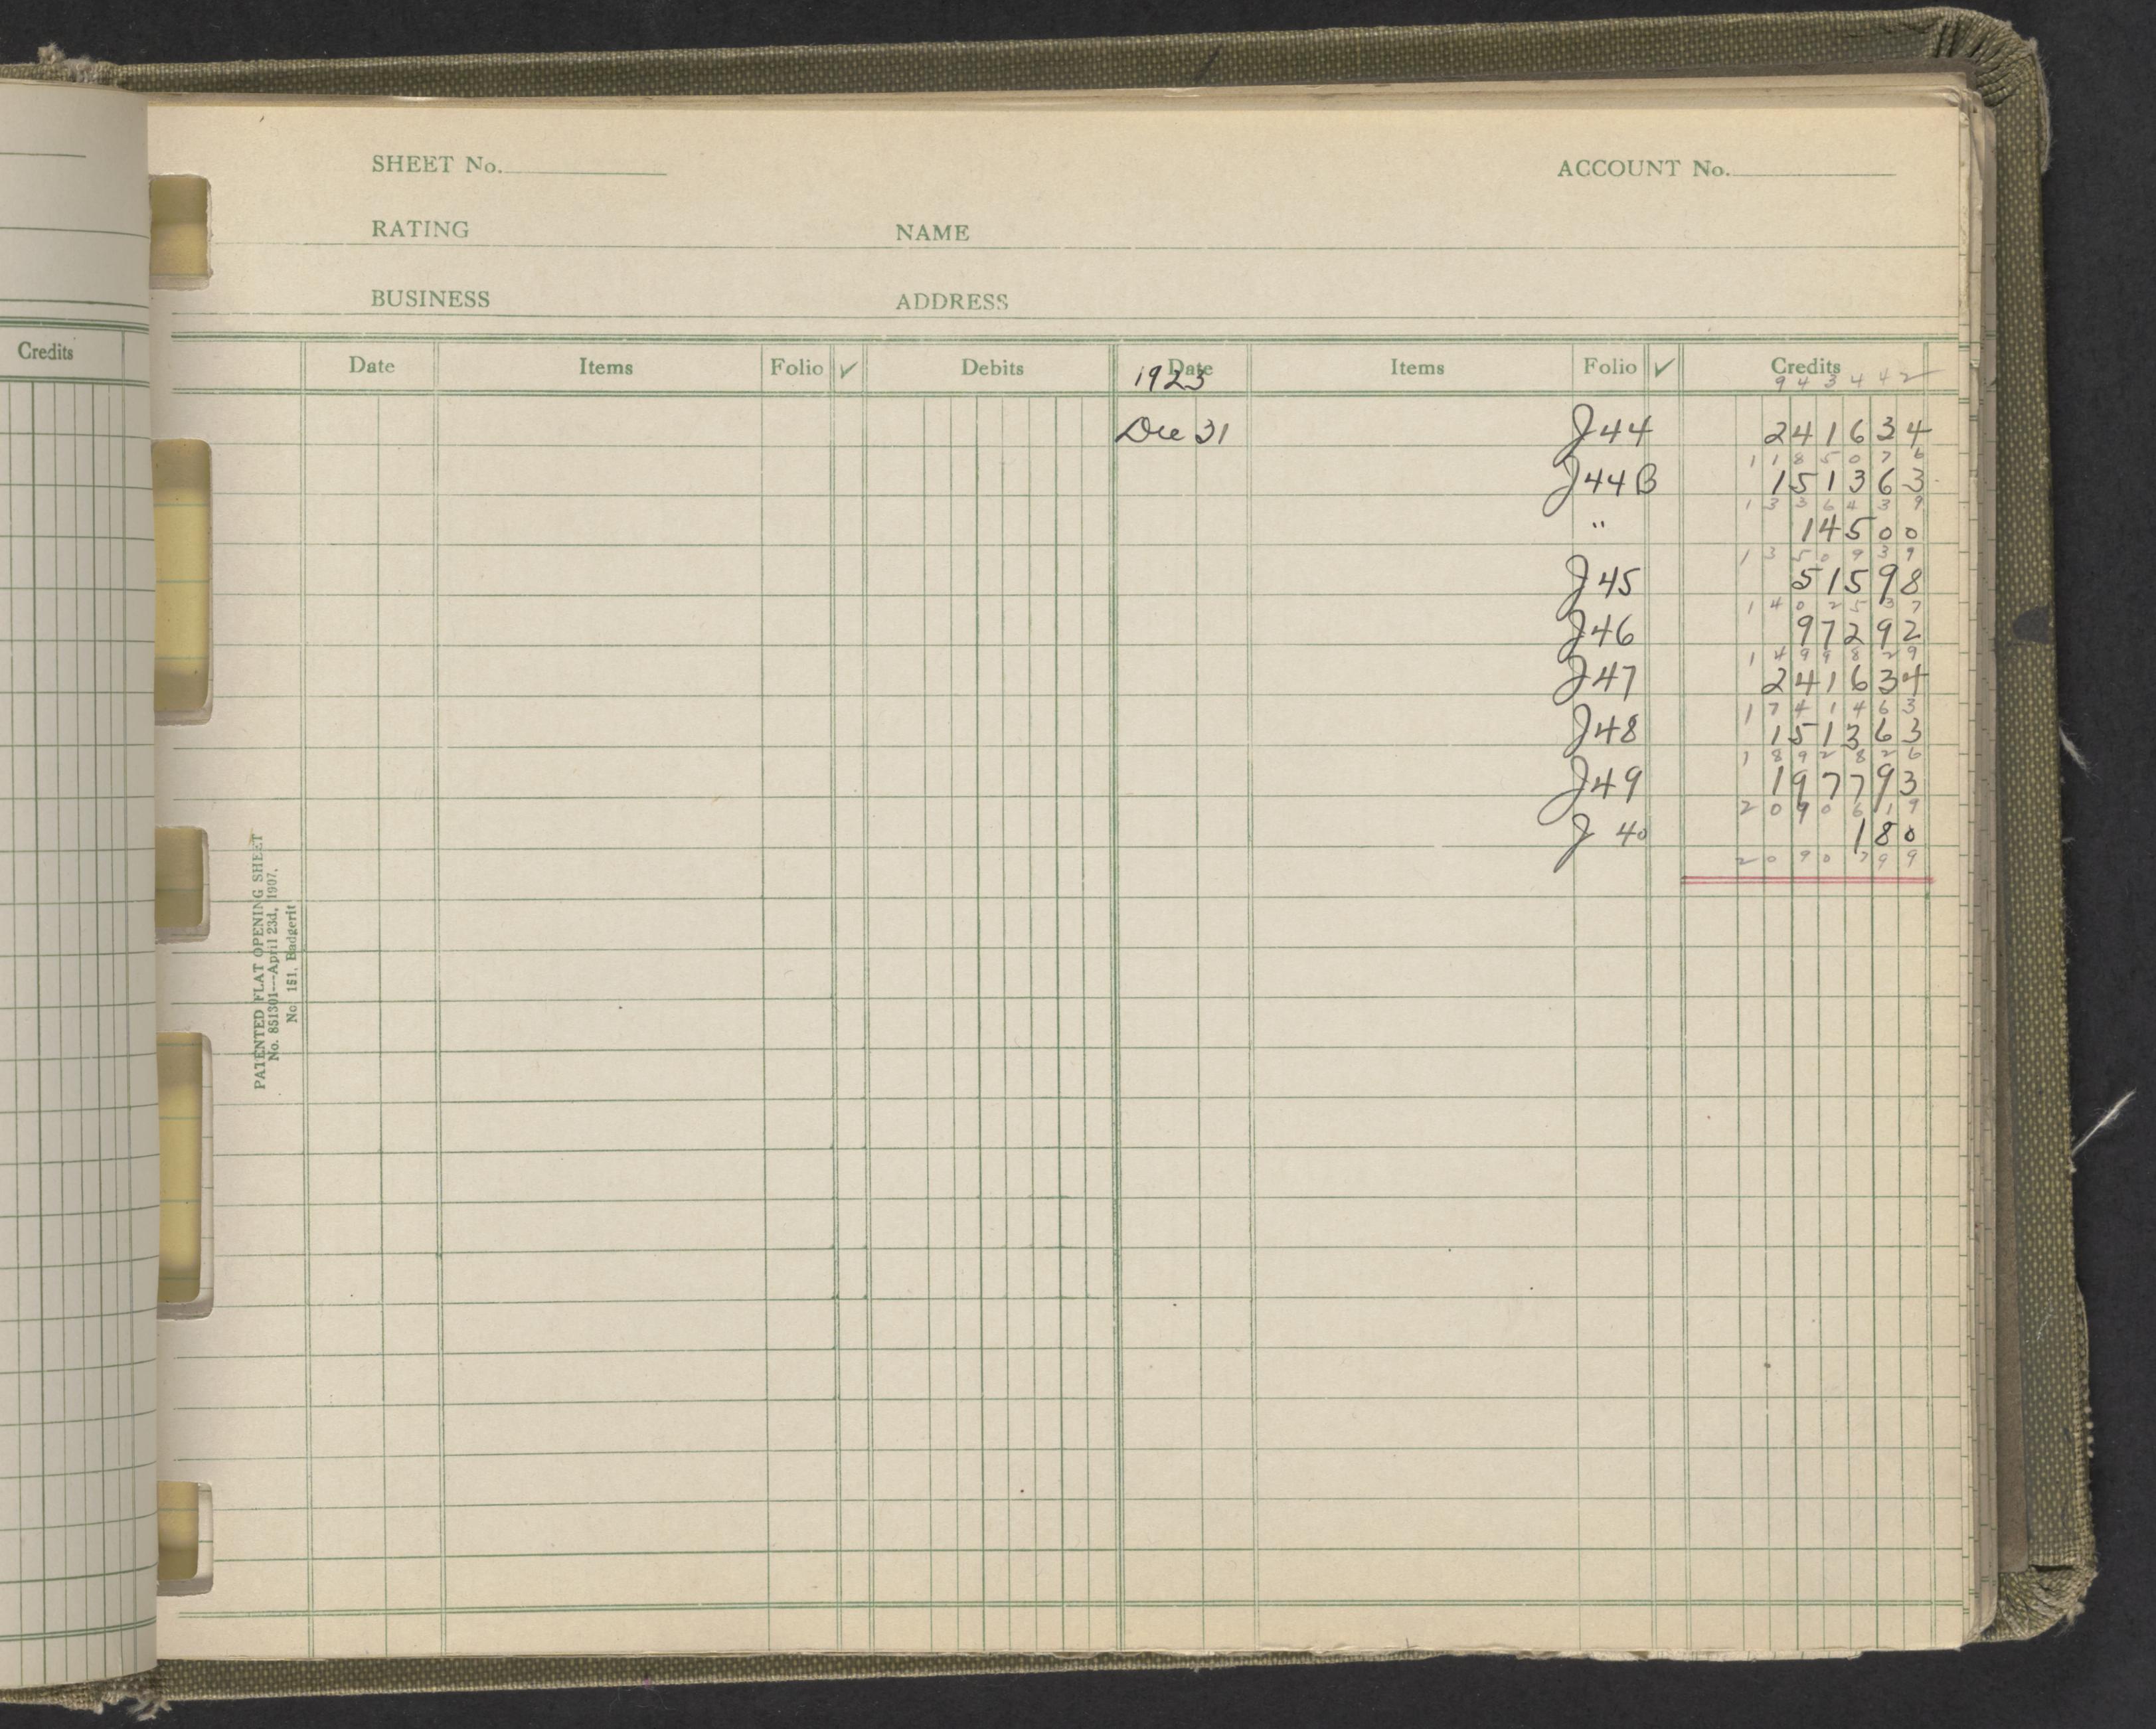 SHEET No. ACCOUNT No.
RATING NAME
BUSINESS ADDRESS
Credits
Date Items Folio ✓ Debits Date Items Folio ✓ Credits
1923 943442
Dec 31 J44 241634
1185076
J44B 151363
1336439
" 14500
1350939
J45 51598
1402537
J46 97292
1499829
J47 241634
1741463
J48 151363
1892826
J49 197793
2090619
J 40 180
2090799
PATENTED FLAT OPENING SHEET
No. 851301---April 23d, 1907.
No. 151, Badgerit